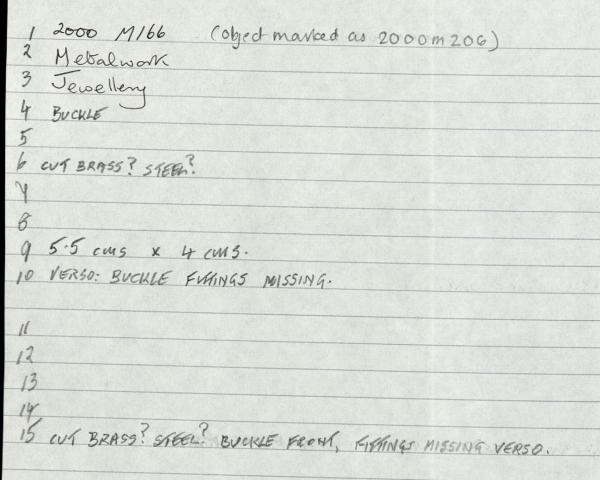 1 2000 M166 (object marked as 2000m206)
2 Metalwork
3 Jewellery
4 BUCKLE
5
6 CUT BRASS? STEEL?
7
8
9 5.5 cms x 4 cms.
10 VERSO: BUCKLE FITTINGS MISSING.
11
12
13
14
15 CUT BRASS? STEEL? BUCKLE FRONT, FITTINGS MISSING VERSO.